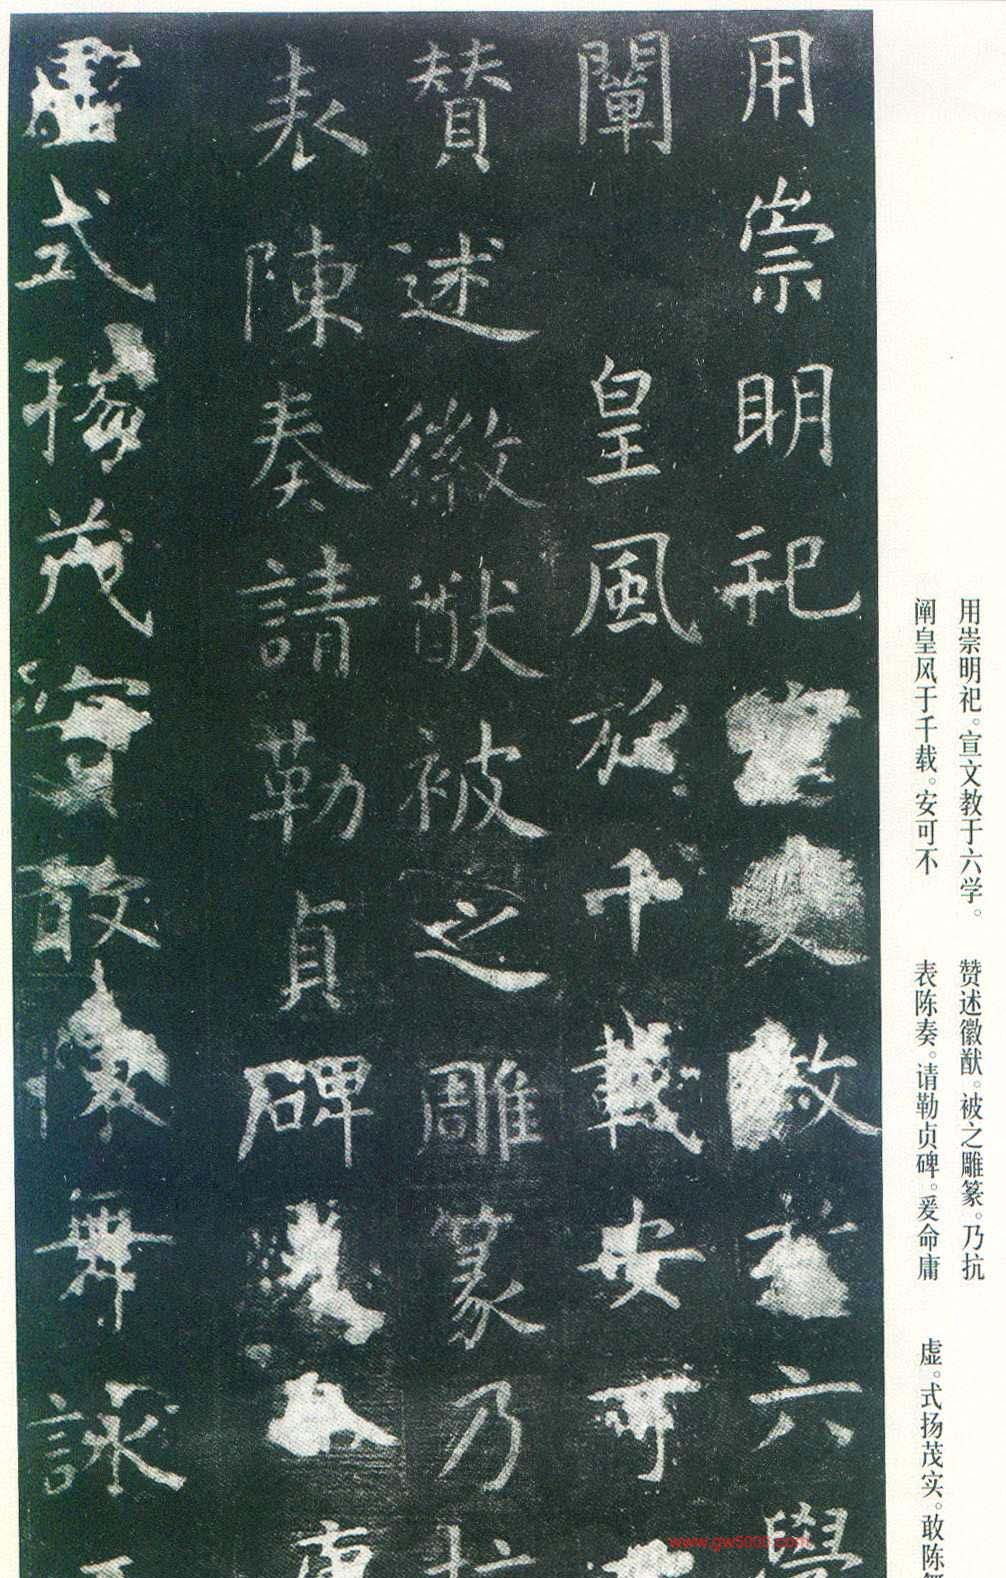 用崇明祀宣文教於六學
闡皇風於千載安可不
贊述徽猷被之雕篆乃抗
表陳奏請勒貞碑爰命庸
虛式揚茂實敢陳舞詠
用崇明祀。宣文教于六学。
阐皇风于千载。安可不
赞述徽猷。被之雕篆。乃抗
表陈奏。请勒贞碑。爰命庸
虚。式扬茂实。敢陈
www.gw5000.com